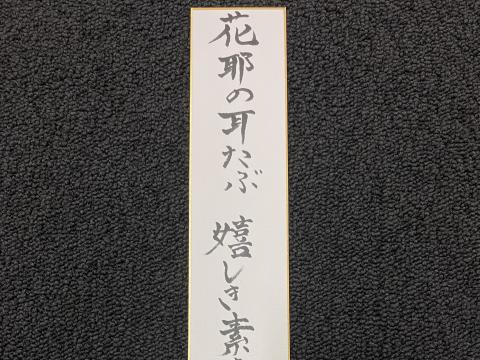 花耶の耳たぶ 嬉しき素